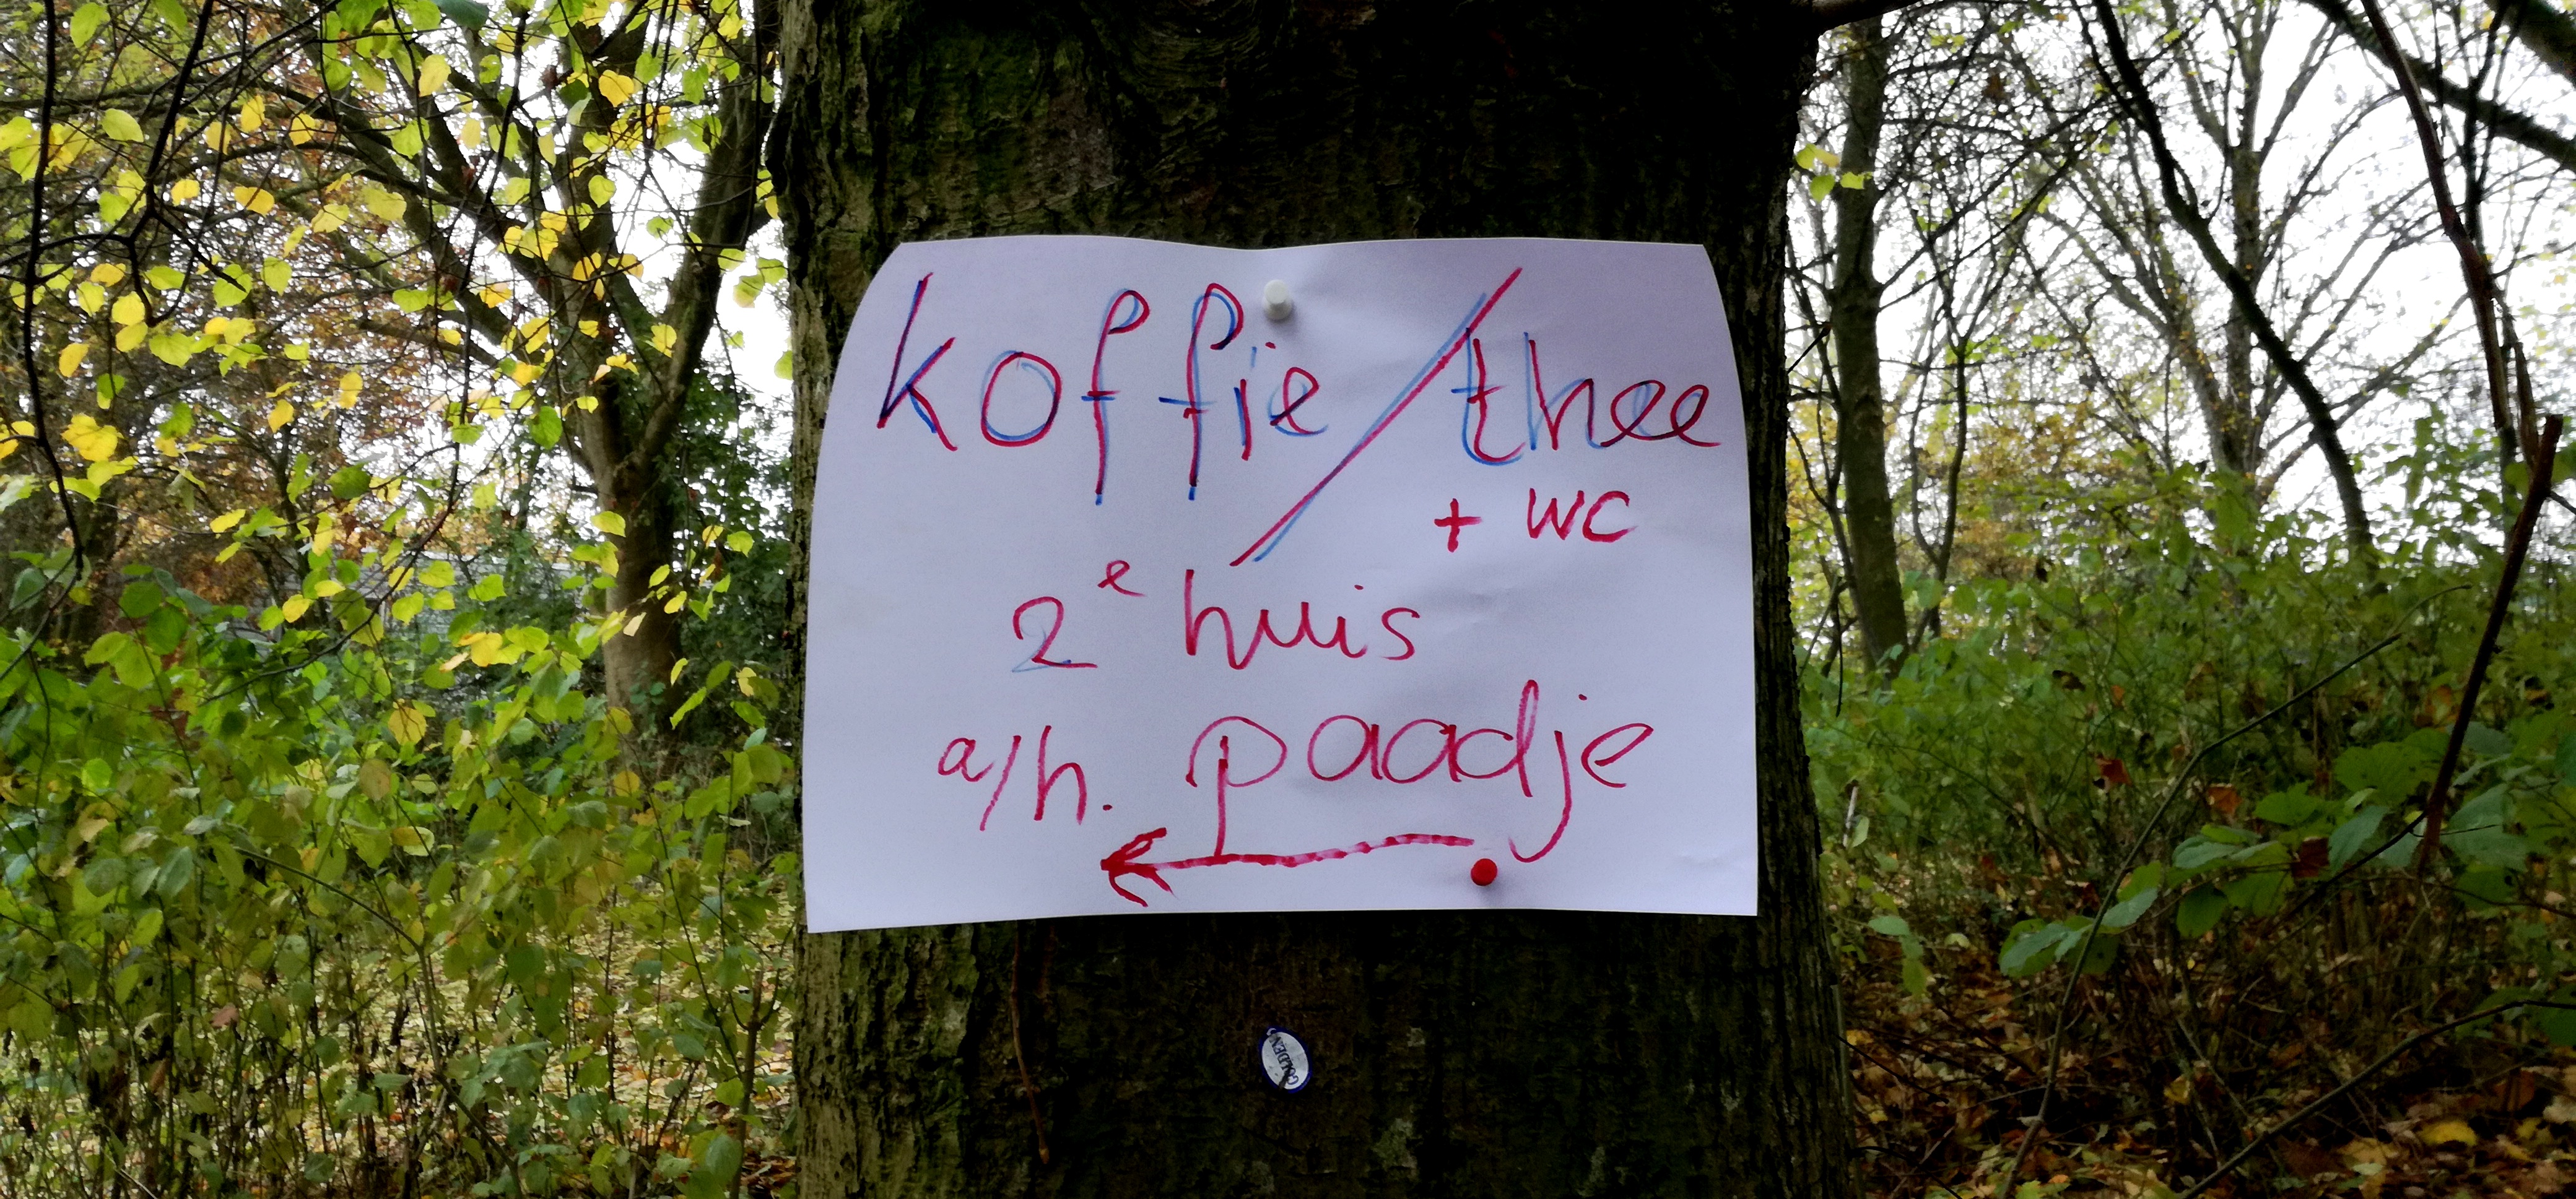 koffie/thee
+ WC
2e huis
a/h. paadje
GOLDEN